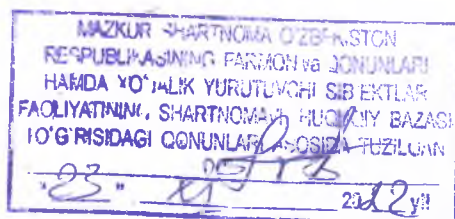 MAZKUR SHARTNOMA O'ZBEKISTON
RESPUBLIKASINING FARMON va QONUNLARI
HAMDA XO'JALIK YURUTUVCHI SUB'EKTLAR
FAOLIYATINING SHARTNOMAVIY HUQUQIY BAZASI
TO'G'RISIDAGI QONUNLARI ASOSIDA TUZILGAN
"23" XI 2022 yil